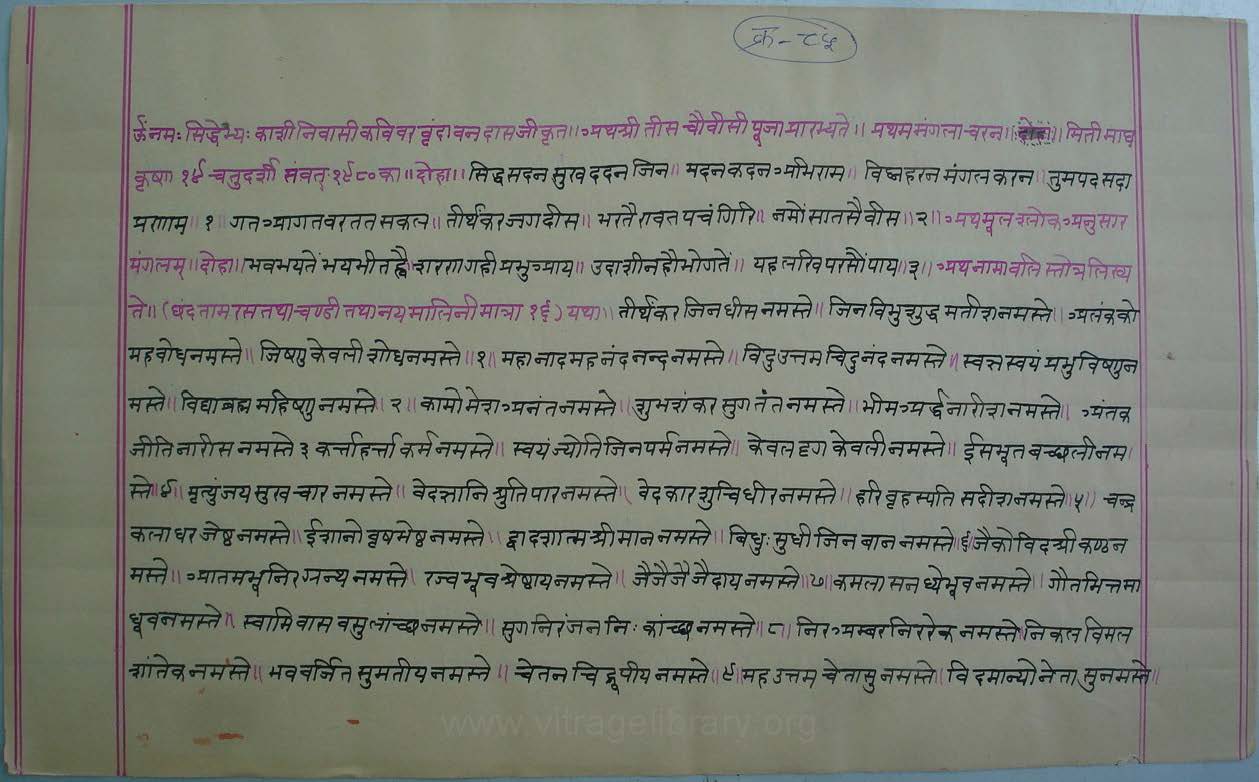 क्र-८५
ॐनमः सिद्धेभ्यः काशीनिवासी कविवर वृंदावनदासजीकृत॥ अथश्री तीस चौवीसी पूजा प्रारभ्यते॥ प्रथममंगलाचरन॥ दोहा॥ मिती माघ
कृष्ण १४ चतुर्दशी संवत् १९८० का॥ दोहा॥ सिद्धसदन सुखददन जिन॥ मदनकदन अभिराम॥ विघ्नहरन मंगलकरन॥ तुमपदसदा
प्रणाम॥ १॥ गतआगतवरततसकल॥ तीर्थंकरजगदीस॥ भरतैरावतपचंगिरि॥ नमोंसातसैवीस॥ २॥ अथमूलश्लोकअनुसार
मंगलम्॥ दोहा॥ भवभयतें भयभीतह्वै शरणगही प्रभुआय॥ उदाशीनहौभोगतें॥ यहलखिपरसौंपाय॥ ३॥ अथनामावलिस्तोत्रलिख्य
ते॥ (छंदतामरसतथाचण्डीतथानयमालिनीमात्रा १६) यथा॥ तीर्थंकर जिनधीस नमस्ते॥ जिनविभुशुद्ध मतीशनमस्ते॥ अलंकको
महवोधनमस्ते॥ जिष्णुकेवली शोधनमस्ते॥ १॥ महानादमहनंदनन्दनमस्ते॥ विदुउत्तमविदुनंदनमस्ते॥ स्वक्तस्वयंप्रभुविष्णुन
मस्ते॥ विद्याब्रह्ममहिष्णुनमस्ते॥ २॥ कामोमेशअनंतनमस्ते॥ शुभशंकर सुगतंतनमस्ते॥ भीमअर्द्धनारीशनमस्ते॥ अंतक
जीतिनारीसनमस्ते ३ कर्त्ताहर्त्ताकर्मनमस्ते॥ स्वयंज्योतिजिनपर्मनमस्ते॥ केवलदृगकेवलीनमस्ते॥ ईसभूतबच्छलीनम
स्ते॥ ४॥ मृत्युंजयसुखचार नमस्ते॥ वेदज्ञानिश्रुतिपारनमस्ते॥ वेदकारशुचिधीरनमस्ते॥ हरिवृहस्पतिसदीशनमस्ते॥ ५॥ चन्द्र
कलाधर जेष्ठनमस्ते॥ ईशानोवृषभेष्ठनमस्ते॥ द्वादशात्मश्रीमाननमस्ते॥ बिधुःसुधीजिनबाननमस्ते॥ ६॥ जैकोविदश्रीकण्ठन
मस्ते॥ आतमभूनिरग्रन्थनमस्ते॥ रज्वभूवश्रेष्ठायनमस्ते॥ जैजैजैजैदायनमस्ते॥ ७॥ कमलासनध्येभूवनमस्ते॥ गौतमित्तमा
धूवनमस्ते॥ स्वामिवासवसुलांच्छनमस्ते॥ सुगनिरंजननिःकांच्छनमस्ते॥ ८॥ निरअम्बरनिररेकनमस्ते॥ निकलविमल
शांतेकनमस्ते॥ भववर्जितसुमतीयनमस्ते॥ चेतनचिद्रूपीयनमस्ते॥ ९॥ महउत्तमचेतासुनमस्ते॥ विदमान्योनेतासुनमस्ते॥
www.vitragelibrary.org